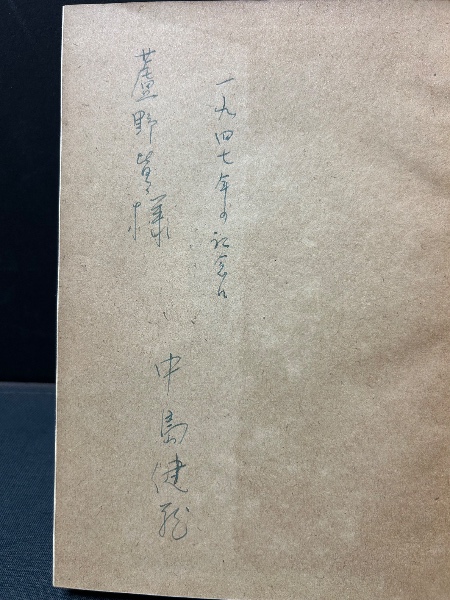 一九四七年の記念に
蘆野皆様
中島健蔵